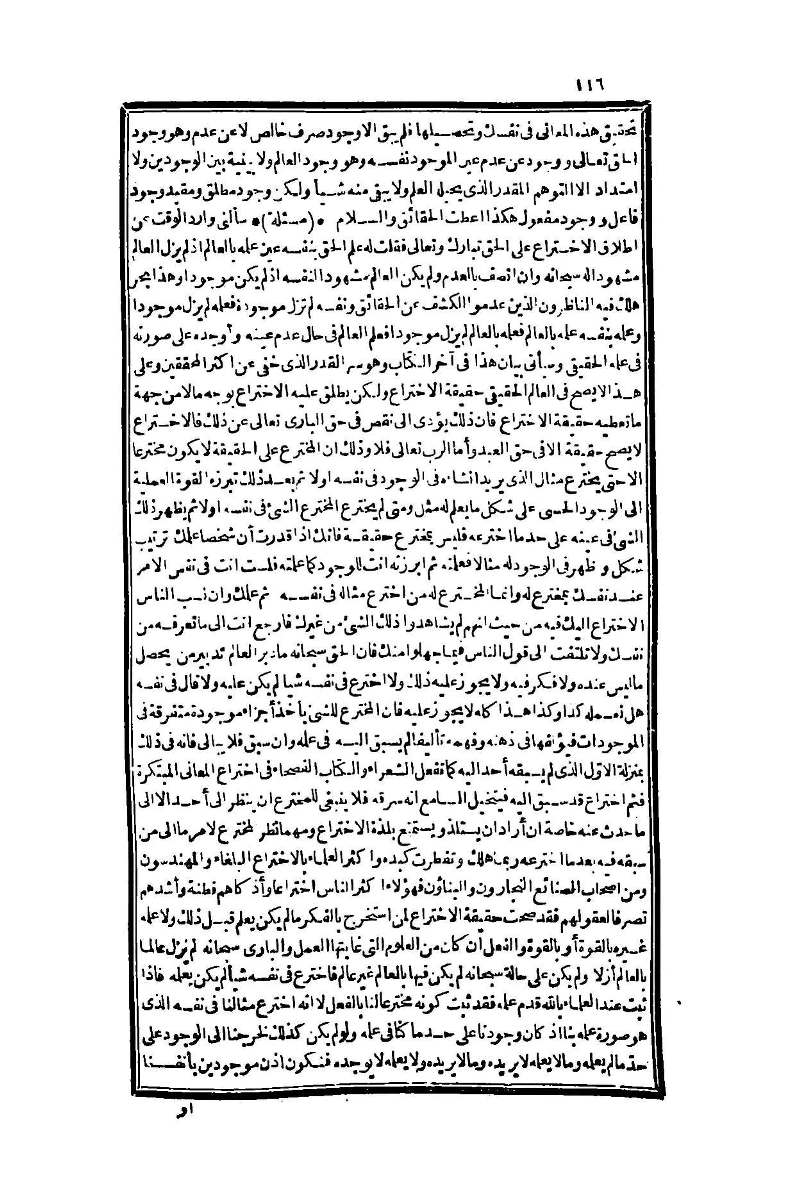 ١١٦
تحقيق هذه المعانى فى نفسك وتحصيلها فلم يبق الا وجود صرف خالص لا عن عدم وهو وجود
الحق تعالى ووجود عن عدم عين الموجود نفسه وهو وجود العالم ولا بينية بين الوجودين ولا
امتداد الا التوهم المقدر الذى يحيله العلم ولا يبقى منه شيأ ولكن وجود مطلق ومقيد وجود
فاعل ووجود مفعول هكذا اعطت الحقائق والسلام * (مسئلة) * سألنى وارد الوقت عن
اطلاق الاختراع على الحق تبارك وتعالى فقلت له علم الحق بنفسه عين علمه بالعالم اذ لم يزل العالم
مشهودا له سبحانه وان اتصف بالعدم ولم يكن العالم مشهودا لنفسه اذ لم يكن موجودا وهذا بحر
هلك فيه الناظرون الذين عدموا الكشف عن الحقائق ونفسه لم تزل موجودة فعلمه لم يزل موجودا
وعلمه بنفسه علمه بالعالم فعلمه بالعالم لم يزل موجودا فعلم العالم فى حال عدم عينه وأوجده على صورته
فى علمه الحقيقى وسيأتى بيان هذا فى آخر الكتاب وهو سر القدر الذى خفى عن اكثر المحققين وعلى
هذا لا يصح فى العالم الحقيقى حقيقة الاختراع ولكن يطلق عليه الاختراع بوجه ما لا من جهة
ما تعطيه حقيقة الاختراع فان ذلك يؤدى الى نقص فى حق البارى تعالى عن ذلك فالاختراع
لا يصح حقيقة الا فى حق العبد وأما الرب تعالى فلا وذلك ان المخترع على الحقيقة لا يكون مخترعا
الا حتى يخترع مثال الذى يريد انشاءه فى الوجود فى نفسه اولا ثم بعد ذلك تبرزه القوة العملية
الى الوجود الحسى على شكل ما يعلم له مثل ومتى لم يخترع المخترع الشئ فى نفسه اولا ثم يظهر ذلك
الشئ فى عينه على حد ما اخترعه فليس بمخترع حقيقة فانك اذا قدرت أن شخصا علمك ترتيب
شكل وظهر فى الوجود له مثالا فعلمته ثم ابرزته انت للوجود كما علمته فلست انت فى نفس الامر
عند نفسك بمخترع له وانما المخترع له من اخترع مثاله فى نفسه ثم علمك وان نسب الناس
الاختراع اليك فيه من حيث انهم لم يشاهدوا ذلك الشئ من غيرك فارجع انت الى ما تعرفه من
نفسك ولا تلتفت الى قول الناس فيما جهلوا منك فان الحق سبحانه ما دبر العالم تدبير من يحصل
ما ليس عنده ولا فكر فيه ولا يجوز عليه ذلك ولا اخترع فى نفسه شيأ لم يكن عليه ولا قال فى نفسه
هل نعمله كذا وكذا هذا كله لا يجوز عليه فان المخترع للشئ يأخذ أجزاء موجودة متفرقة فى
الموجودات فيؤلفها فى ذهنه وفهمه تأليفا لم يسبق اليه فى علمه وان سبق فلا يبالى فانه فى ذلك
بمنزلة الاول الذى لم يسبقه أحد اليه كما تفعل الشعراء والكتاب الفصحاء فى اختراع المعانى المبتكرة
فثم اختراع قد سبق اليه فيتخيل السامع انه سرقه فلا ينبغى للمخترع ان ينظر الى أحد الا الى
ما حدث عنه خاصة ان أراد ان يستلذ ويستمتع بلذة الاختراع ومهما نظر المخترع لامر ما الى من
سبقه فيه بعد ما اخترعه ربما هلك وتفطرت كبده واكثر العلماء بالاختراع البلغاء والمهندسون
ومن اصحاب الصنائع النجارون والبناؤن فهؤلاء اكثر الناس اختراعا وأذكاهم فطنة وأشدهم
تصرفا لعقولهم فقد صحت حقيقة الاختراع لمن استخرج بالفكر ما لم يكن يعلم قبل ذلك ولا علمه
غيره بالقوة أو بالقوة والفعل أن كان من العلوم التى غايتها العمل والبارى سبحانه لم يزل عالما
بالعالم أزلا ولم يكن على حالة سبحانه لم يكن فيها بالعالم غير عالم فاخترع فى نفسه شيأ لم يكن يعلمه فاذا
ثبت عند العلماء بالله قدم علمه فقد ثبت كونه مخترعا لنا بالفعل لا انه اخترع مثالنا فى نفسه الذى
هو صورة علمه بنا اذ كان وجودنا على حد ما كنا فى علمه ولو لم يكن كذلك لخرجنا الى الوجود على
حد ما لم يعلمه وما لا يعلمه لا يريده وما لا يريده ولا يعلمه لا يوجده فنكون اذن موجودين بأنفسنا
او